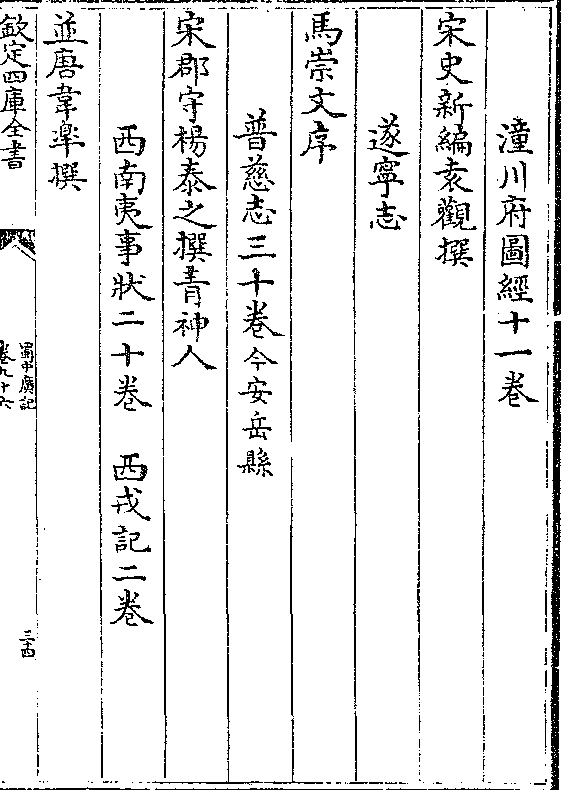 潼川府圖經十一卷
宋史新編袁觀撰
遂寧志
馬崇文序
普慈志三十卷今安岳縣
宋郡守楊泰之撰青神人
西南夷事狀二十卷　西戎記二卷
並唐韋臯撰
欽定四庫全書
蜀中廣記
卷九十六
三十四